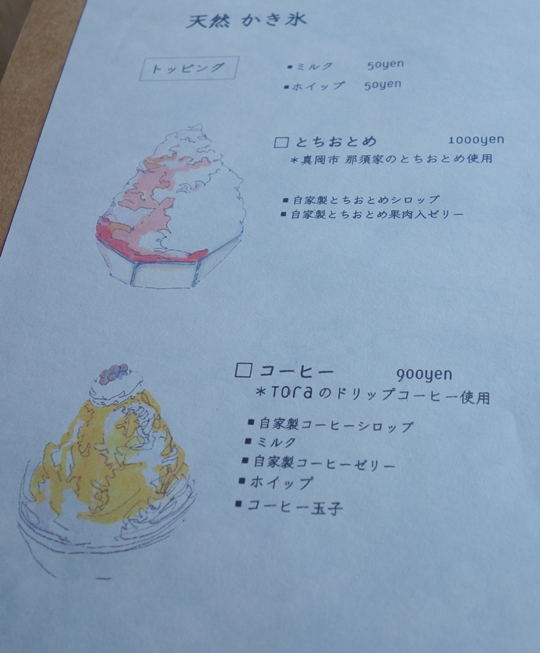 天然 かき氷
トッピング
■ミルク 50yen
■ホイップ 50yen
□ とちおとめ 1000yen
＊真岡市 那須家のとちおとめ使用
■自家製とちおとめシロップ
■自家製とちおとめ果肉入ゼリー
□ コーヒー 900yen
＊Toraのドリップコーヒー使用
■自家製コーヒーシロップ
■ミルク
■自家製コーヒーゼリー
■ホイップ
■コーヒー玉子